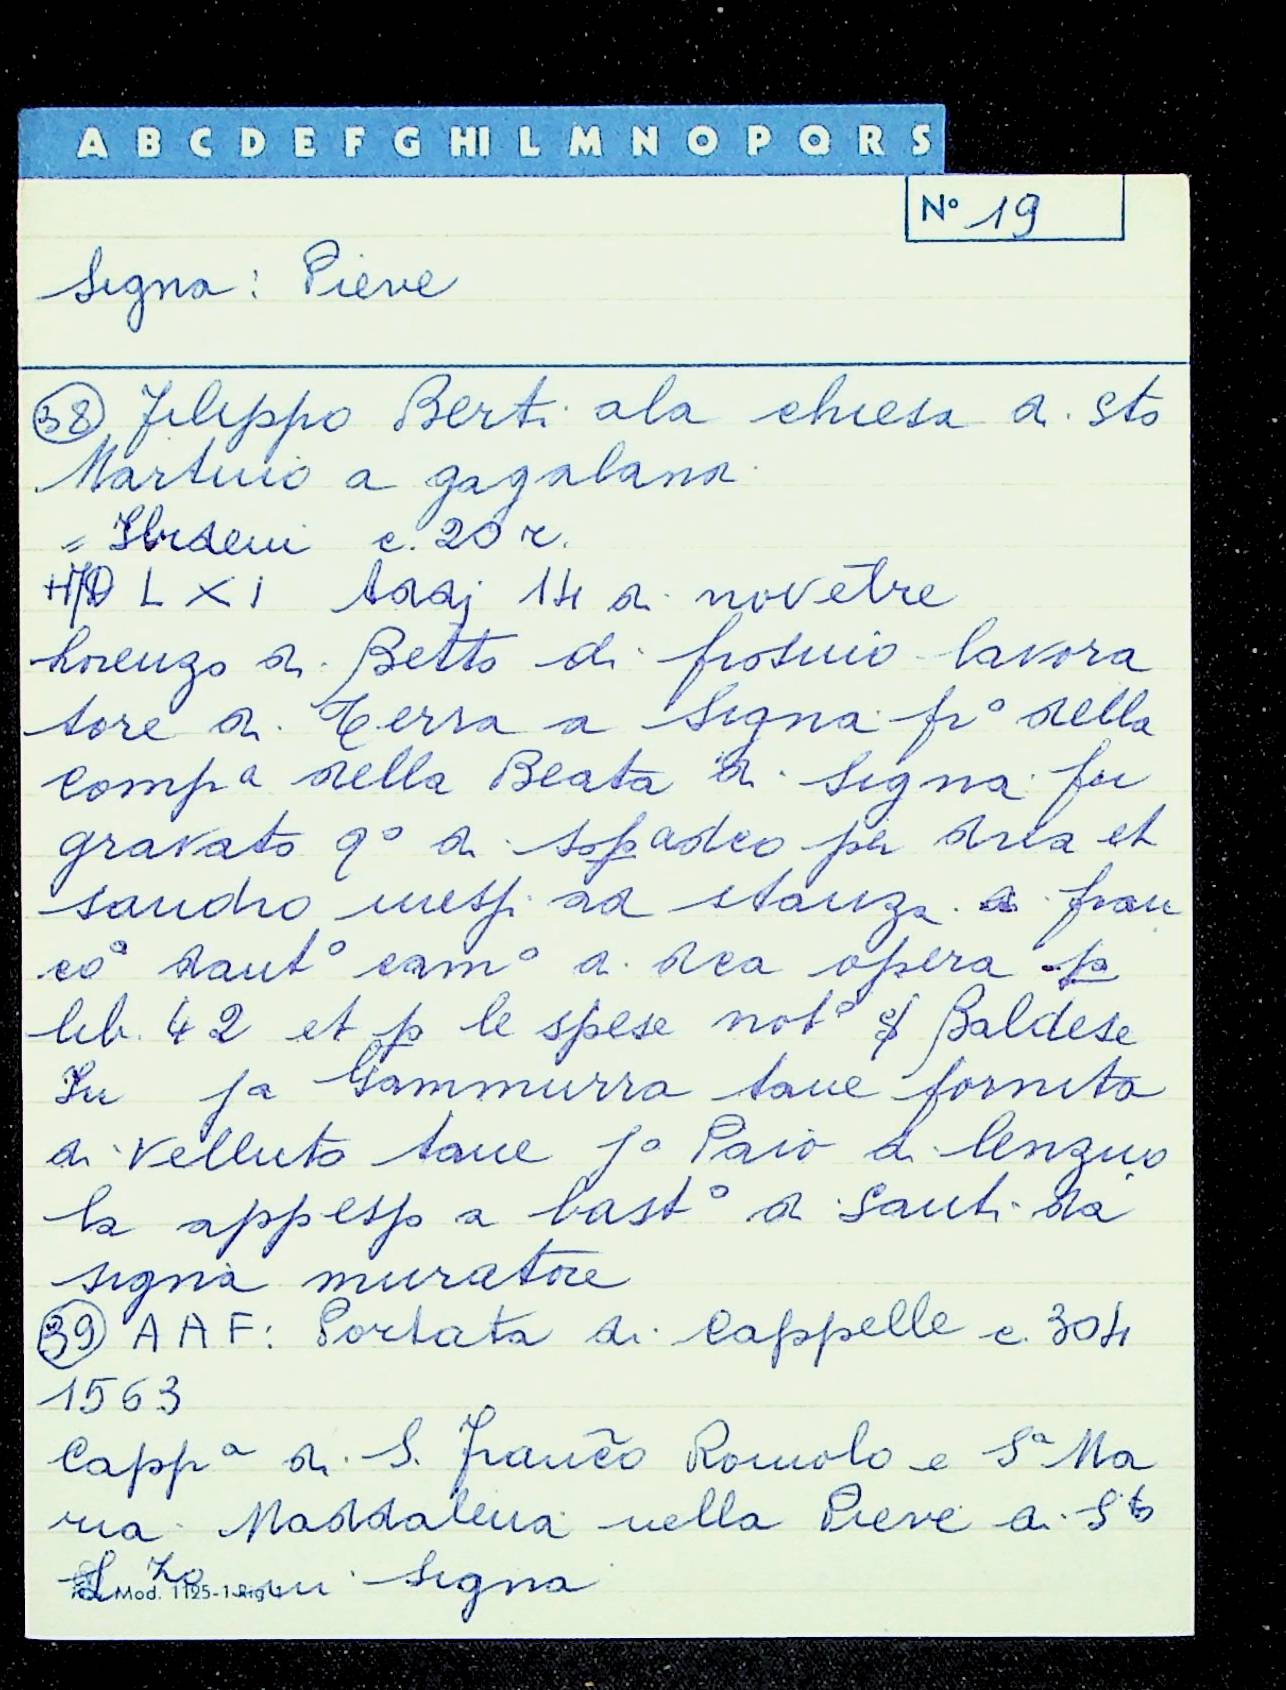 A B C D E F G HI L M N O P Q R S
N° 19
Signa: Pieve
38 Filippo Berti ala chiesa di Sto
Martino a gagalandi
= Ibidem c. 20 r.
MD LXI Addj 14 di novētre
Lorenzo di Betto di frosino lavora
tore di Terra a Signa fr° della
Compa della Beata di Signa fu
gravato q° di sopadco per dica et
sandro messi ad stanza di fran
co° dant° cam° di dca opera p
lib. 42 et p le spese not° Baldese
In ja Gammurra tane fornita
di velluto tane j° Paio di lenzuo
la appesso a bast° di Santi da
signa muratore
39 AAF: Portata di Cappelle c. 304
1563
Cappa di S. Franc̃o Romolo e Sa Ma
ria Maddalena nella Pieve di Sto
Lzo in Signa
Mod. 1125-1